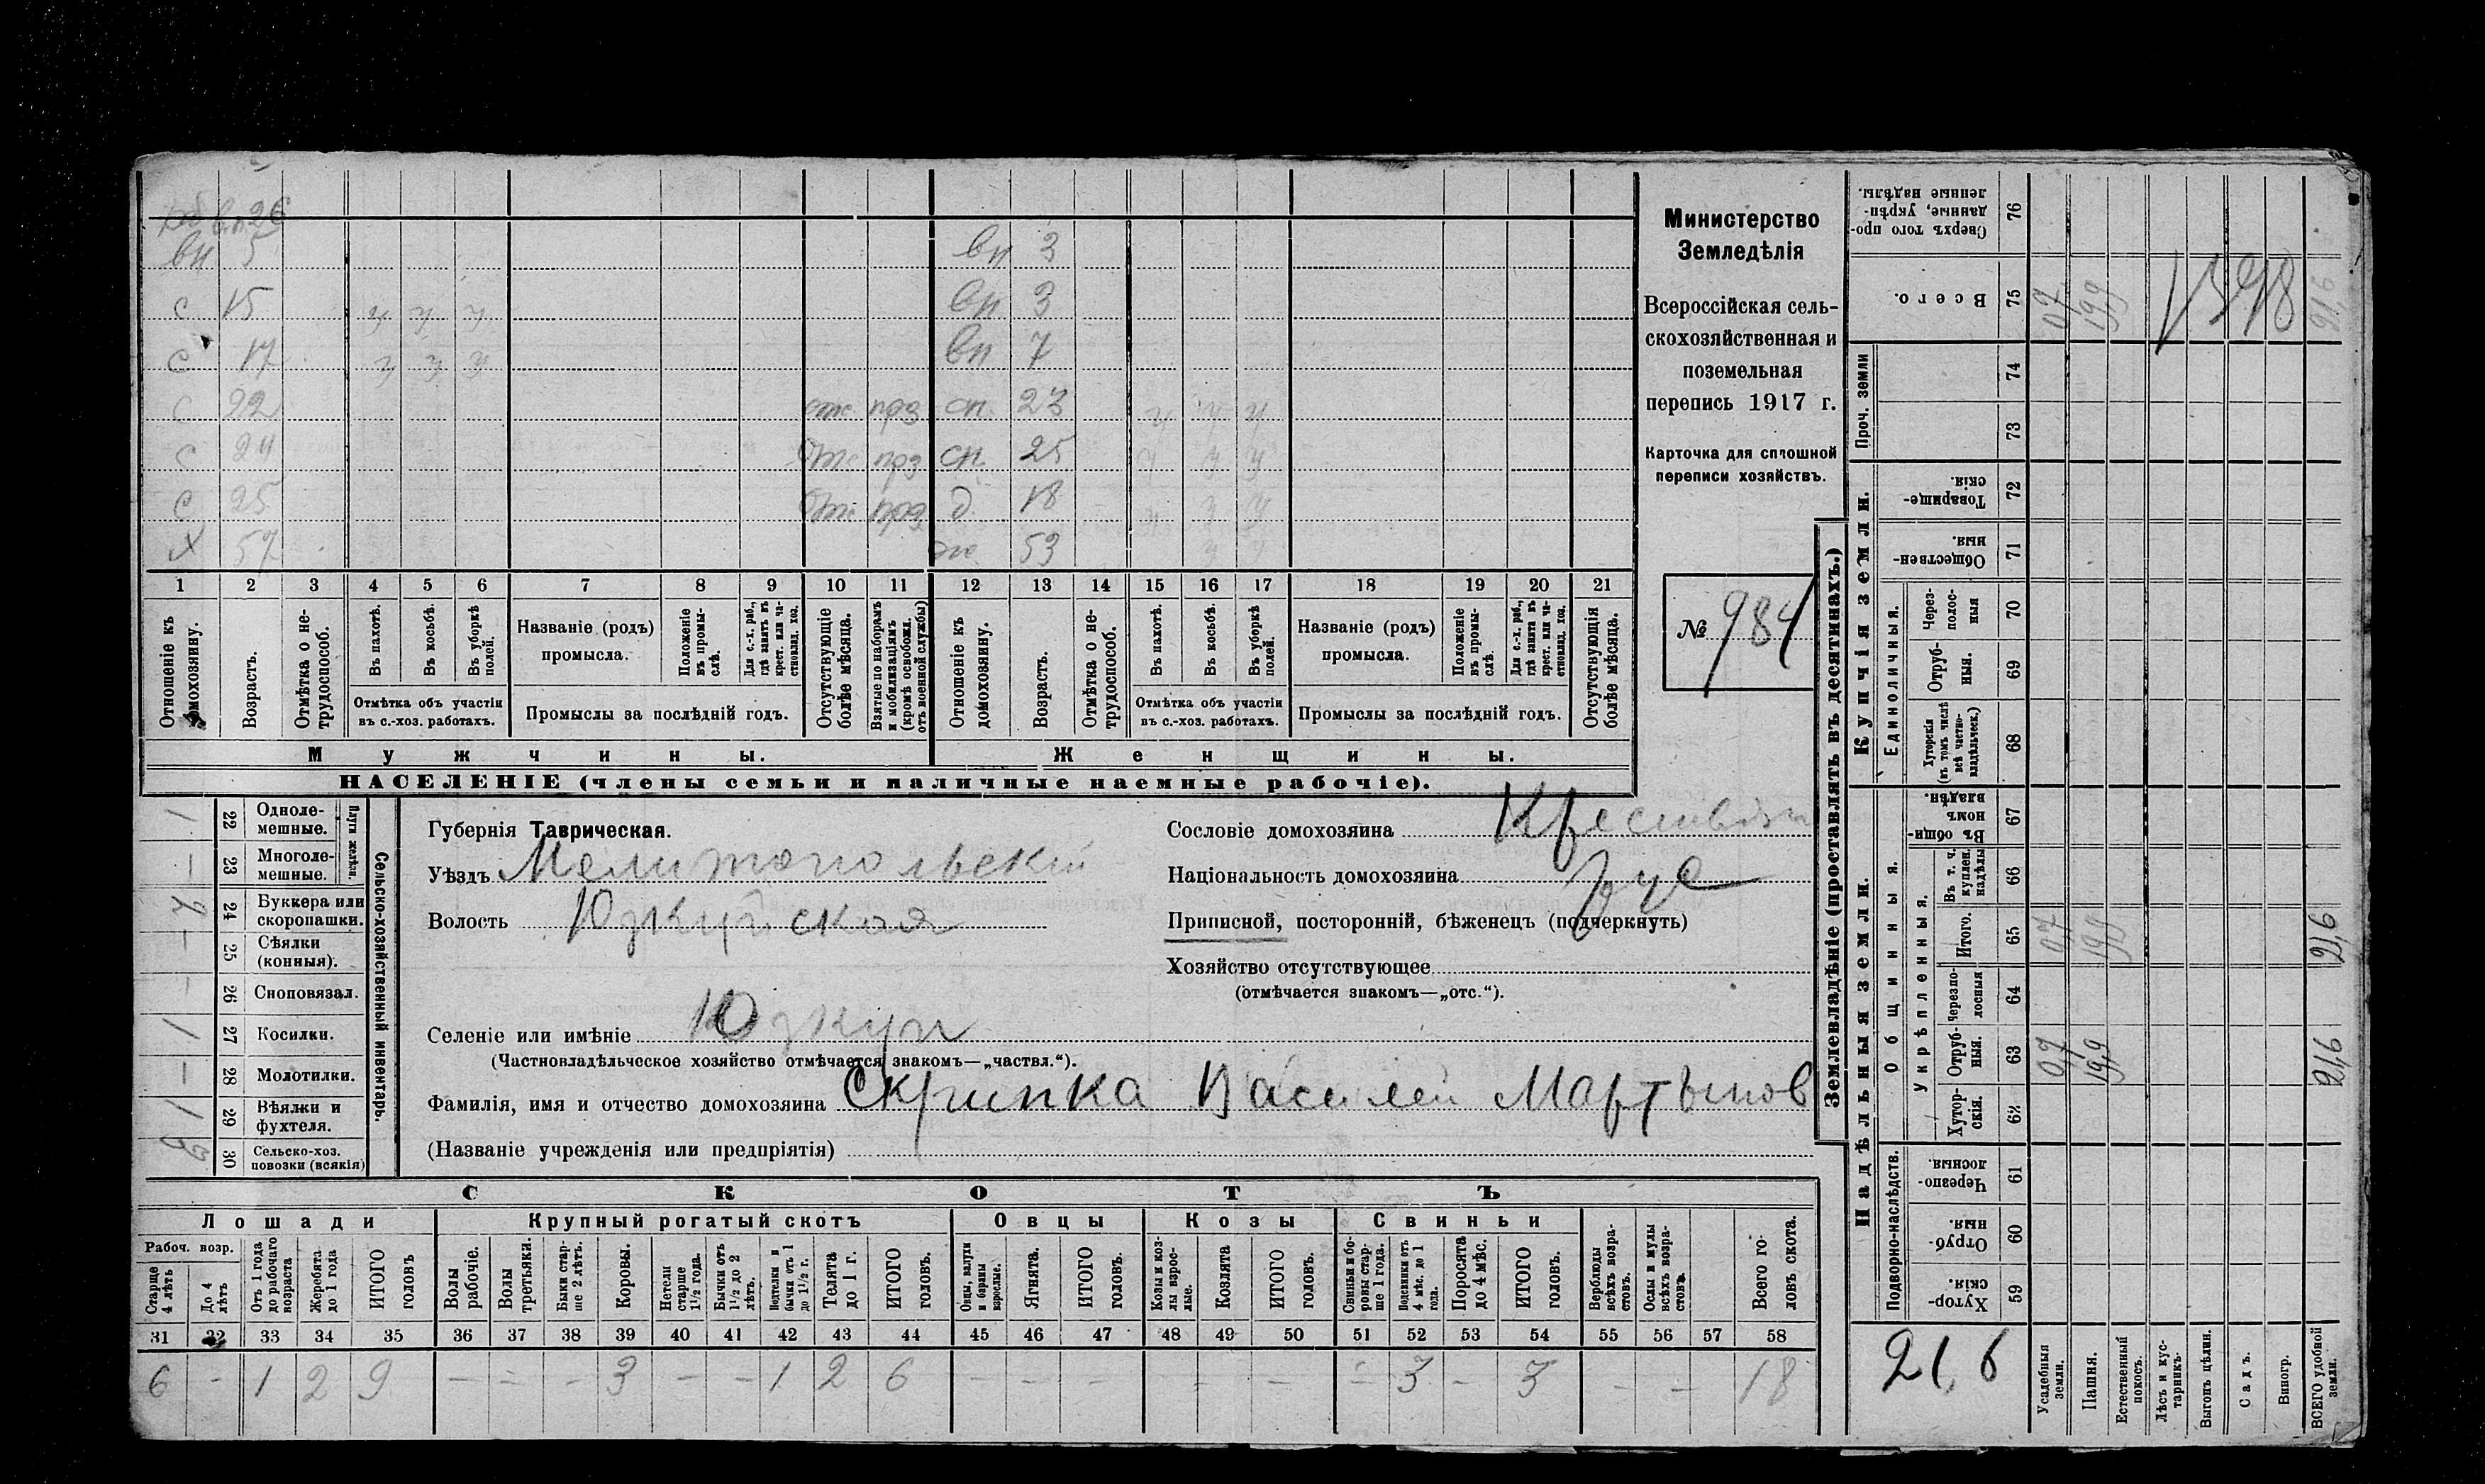 вн 5 вн 3
с 15 у у у вн 3
с 17 у у у вн 7
с 22 отс. прз сн. 23 у у у
с 24 отс. прз сн. 25 у у у
с 25 отс. прз д. 18 у у у
х 57 53 у у
1 2 3 4 5 6 7 8 9 10 11 12 13 14 15 16 17 18 19 20 21
Отношеніе къ домохозяину.
Возрастъ.
Отмѣтка о не-трудоспособ.
Въ пахотѣ.
Въ косьбѣ.
Въ уборкѣ полей.
Отмѣтка объ участіи
въ с.-хоз. работахъ.
Названіе (родъ)
промысла.
Положеніе въ промы-слѣ.
Для с.-х. раб., гдѣ занятъ въ крест. или ча-стновлад. хоз.
Промыслы за послѣдній годъ.
Отсутствующіе болѣе мѣсяца.
Взятые по наборамъ и мобилизаціямъ (кромѣ освобожд. отъ военной службы)
Отношеніе къ домохозяину.
Возрастъ.
Отмѣтка о не-трудоспособ.
Въ пахотѣ.
Въ косьбѣ.
Въ уборкѣ полей.
Отмѣтка объ участіи
въ с.-хоз. работахъ.
Названіе (родъ)
промысла.
Положеніе въ промы-слѣ.
Для с.-х. раб., гдѣ занята въ крест. или ча-стновлад. хоз.
Промыслы за послѣдній годъ.
Отсутствующія болѣе мѣсяца.
Мужчины. Женщины.
НАСЕЛЕНІЕ (члены семьи и наличные наемные рабочіе).
Министерство
Земледѣлія
Всероссійская сель-
скохозяйственная и
поземельная
перепись 1917 г.
Карточка для сплошной
переписи хозяйствъ.
№ 984
Сельско-хозяйственный инвентарь.
Плуги желѣзн.
1 22 Одноле-мешные.
— 23 Многоле-мешные.
2 24 Буккера или скоропашки.
— 25 Сѣялки (конныя).
— 26 Сноповязал.
1 27 Косилки.
— 28 Молотилки.
1 29 Вѣялки и фухтеля.
3 30 Сельско-хоз. повозки (всякія)
Губернія Таврическая.
Уѣздъ Мелитопольскій
Волость Юзкуйская
Селеніе или имѣніе Юзкуи
(Частновладѣльческое хозяйство отмѣчается знакомъ—„частвл.“).
Фамилія, имя и отчество домохозяина Скрипка Василей Мартынов
(Названіе учрежденія или предпріятія)
Сословіе домохозяина Крестьян
Національность домохозяина рус
Приписной, посторонній, бѣженецъ (подчеркнуть)
Хозяйство отсутствующее
(отмѣчается знакомъ—„отс.“).
СКОТЪ
Лошади Крупный рогатый скотъ Овцы Козы Свиньи
Рабоч. возр.
Старше 4 лѣтъ
До 4 лѣтъ
Отъ 1 года до рабочаго возраста
Жеребята до 1 года
ИТОГО головъ
Волы рабочіе.
Волы третьяки.
Быки стар-ше 2 лѣтъ.
Коровы.
Нетели старше 1½ года.
Бычки отъ 1½ до 2 лѣтъ.
Подтелки и бычки отъ 1 до 1½ г.
Телята до 1 г.
ИТОГО головъ.
Овцы, валухи и бараны взрослые.
Ягнята.
ИТОГО головъ.
Козы и коз-лы взрос-лые.
Козлята
ИТОГО головъ.
Свиньи и бо-ровы стар-ше 1 года.
Подсвинки отъ 4 мѣс. до 1 года.
Поросята до 4 мѣс.
ИТОГО головъ.
Верблюды всѣхъ возра-стовъ.
Ослы и мулы всѣхъ возра-стовъ.
Всего го-ловъ скота.
31 32 33 34 35 36 37 38 39 40 41 42 43 44 45 46 47 48 49 50 51 52 53 54 55 56 57 58
6 - 1 2 9 — — — 3 — — 1 2 6 — — — — — — 3 — 3 — — 18
Землевладѣніе (проставлять въ десятинахъ.)
Купчія земли.
Надѣльныя земли.
Сверхъ того про-данные, укрѣп-ленные надѣлы. 76
Всего. 75 0,7 19,9 21,6
1398
Проч. земли 74
73
Товарище-скія. 72
Обществен-ныя. 71
Единоличныя.
Через-полос-ныя 70
Отруб-ныя. 69
Хуторскія (въ томъ числѣ всѣ частно-владѣльческ.) 68
Общинныя.
Въ общин-номъ владѣн. 67
Укрѣпленныя.
Въ т. ч. куплен. надѣлы 66
Итого. 65 0,7 19,9 21,6
Черезпо-лосныя 64
Отруб-ныя. 63 0,7 19,9 21,6
Хутор-скія. 62
Подворно-наслѣдств.
Черезпо-лосныя. 61
Отруб-ныя. 60
Хутор-скія. 59
21,6
Усадебныя земли.
Пашня.
Естественный покосъ.
Лѣсъ и кус-тарникъ.
Выгонъ цѣлин.
Садъ.
Виногр.
ВСЕГО удобной земли.